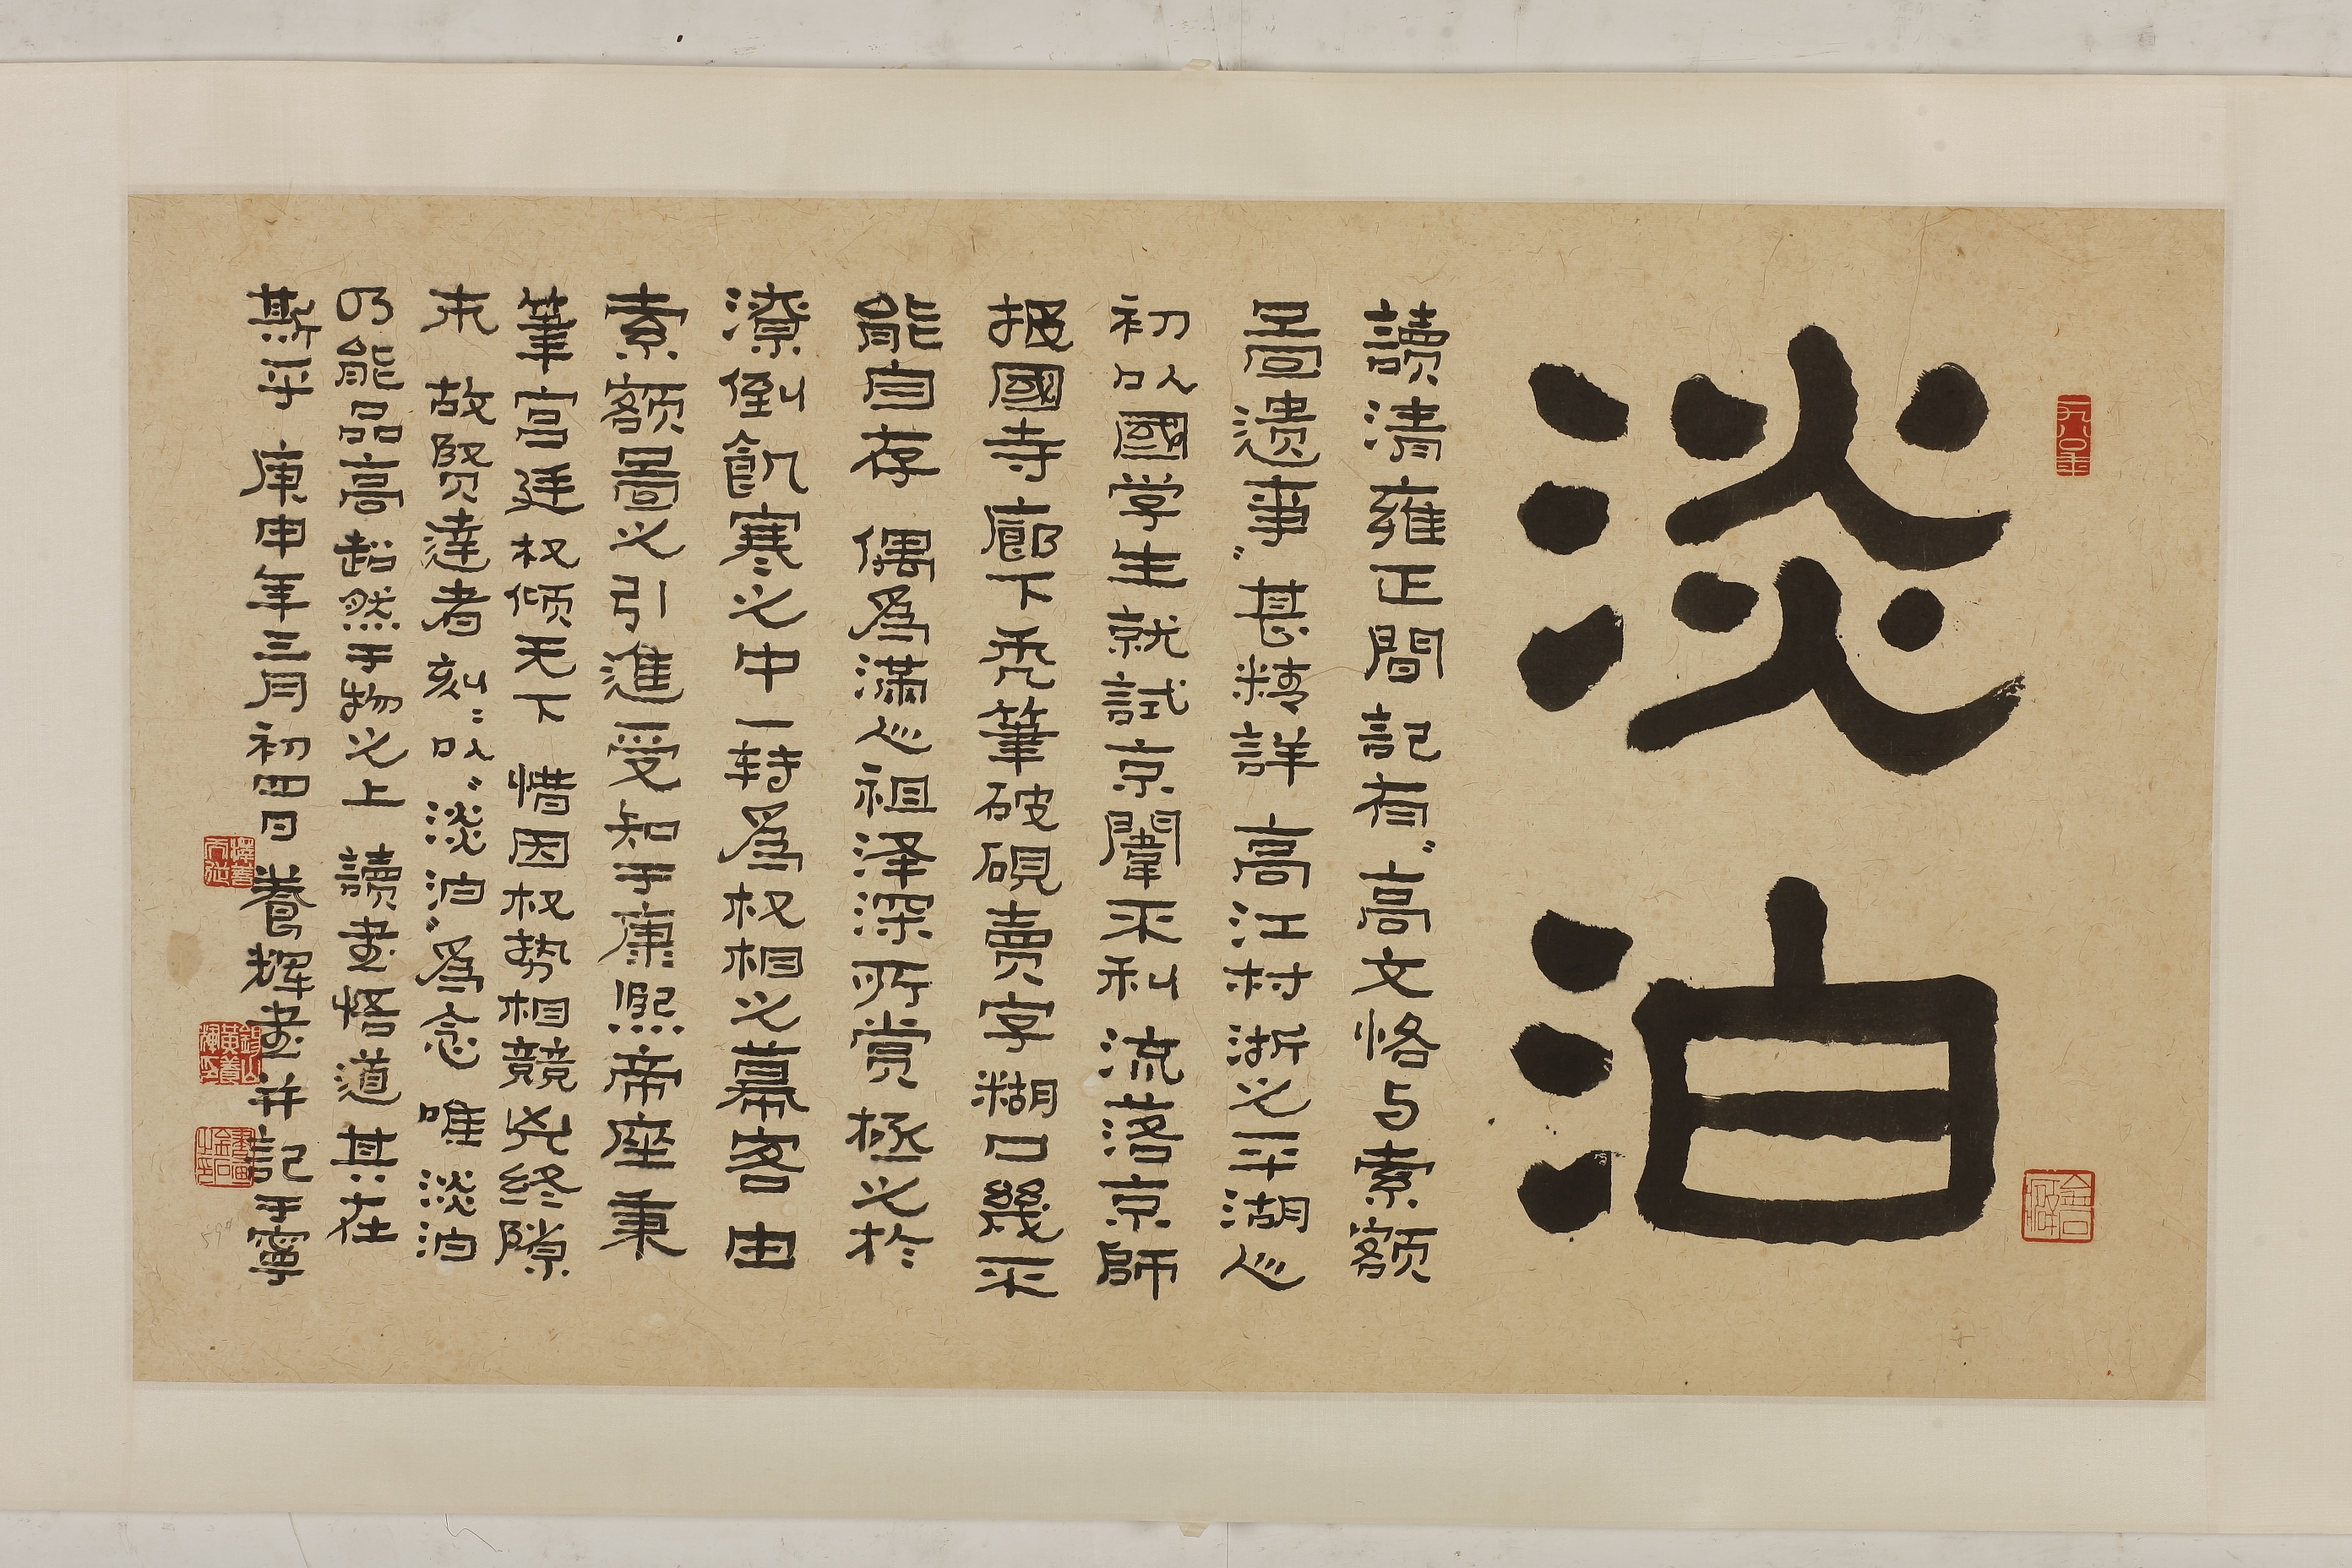 一九八〇年
淡泊
讀清雍正間記有“高文恪与索額
圖遺事”甚詳 高江村浙之平湖人
初以國學生就試京闈不利 流落京師
報國寺廊下禿筆破硯賣字糊口幾不
能自存 偶為滿人祖澤深所賞拯之於
潦倒飢寒之中 一轉為权相之幕客 由
索額圖之引進受知于康熙帝座 秉
筆當廷权傾天下 惜因权勢相競兇終隙
末 故賢達者刻刻以“淡泊”為念 唯淡泊
乃能品高超然于物之上 讀書悟道其在
斯乎 庚申年三月初四日 養輝書并記于甯
錫山黃養輝印